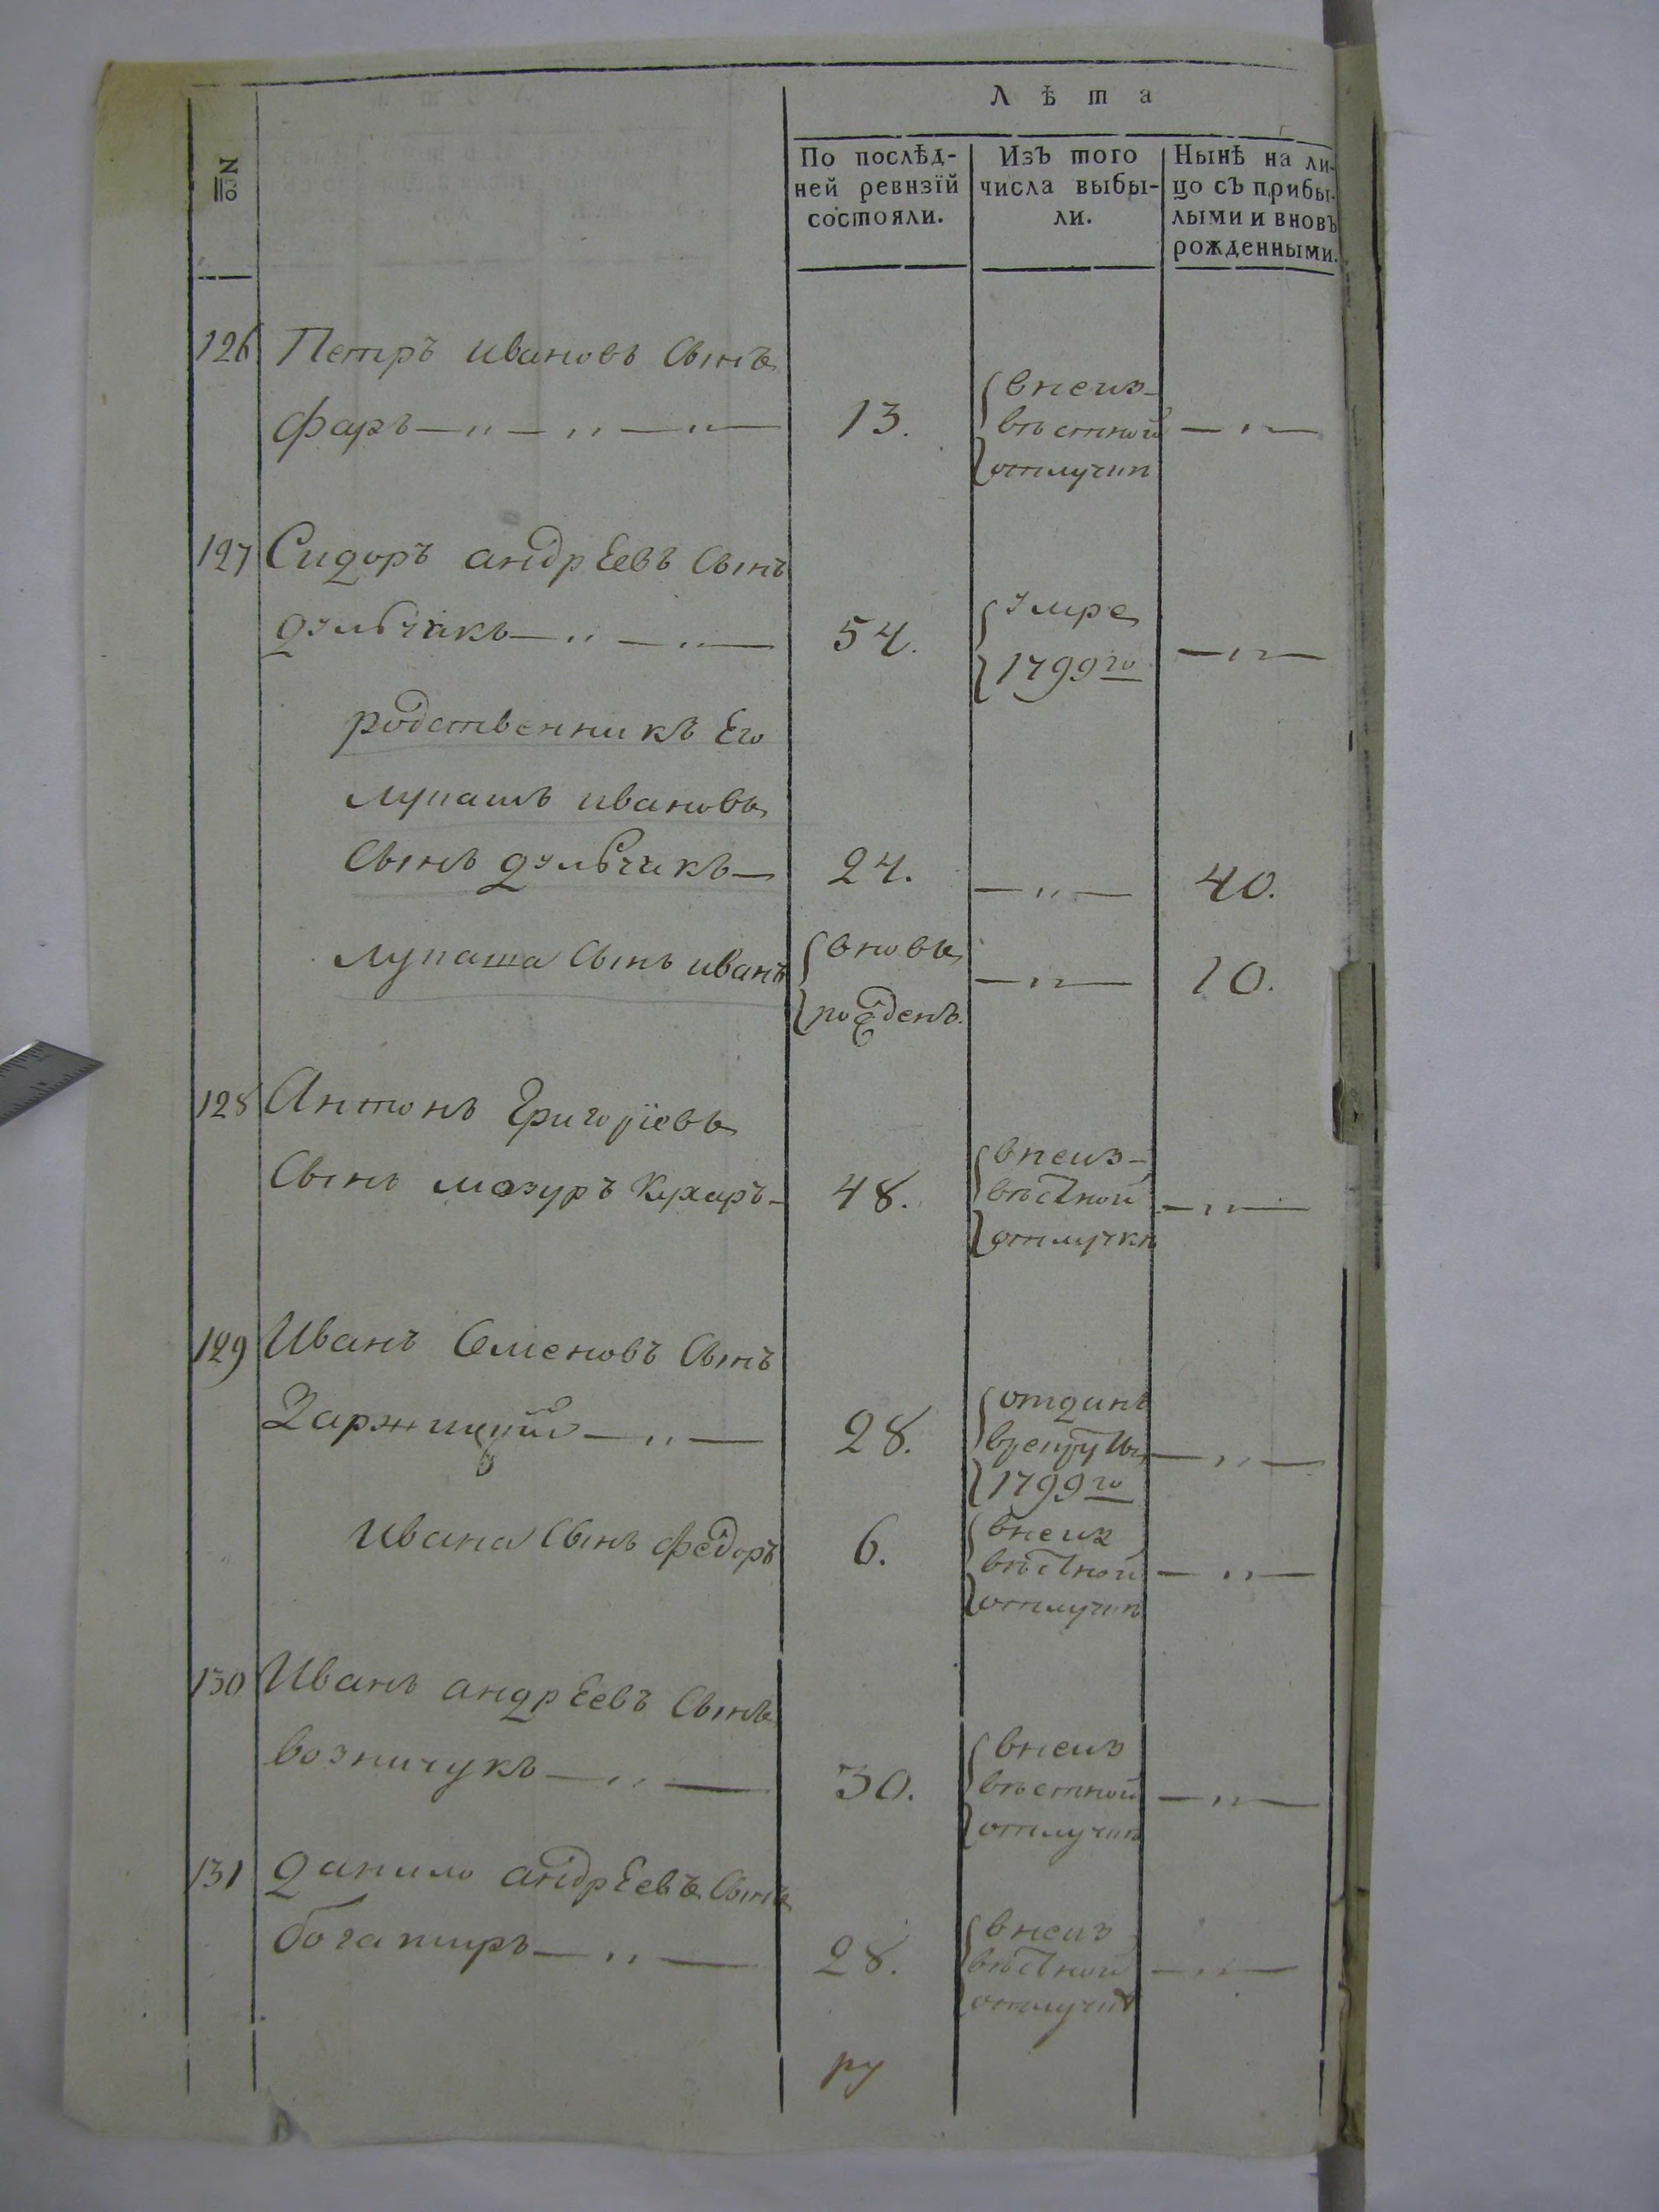 Лѣта
№
По послѣд-
ней ревизїй
состояли.
Изъ того
числа выбы-
ли.
Нынѣ на ли-
цо съ прибы-
лыми и вновь
рожденными.
126 Петръ ивановъ Сынъ
фаръ — „ — „ — „ — 13. внеиз-
вѣстной — „ —
отлучкѣ
127 Сидоръ андрЕевъ Сынъ
дульчикъ — „ — „ — 54. умре
1799го — „ —
родственникъ Его
лупашъ ивановъ
Сынъ дульчикъ — 24. — „ — 40.
лупаша Сынъ иванъ вновь — „ — 10.
рожденъ.
128 Антонъ Григорїевъ
Сынъ мазуръ Кухаръ — 48. внеиз-
вѣстной — „ —
отлучкѣ
129 Иванъ Семеновъ Сынъ
Заржицкий — „ — 28. отданъ
врекруты — „ —
1799го
ивана Сынъ федоръ 6. внеиз
вѣстной — „ —
отлучкѣ
130 Иванъ андрЕевъ Сынъ
возничукъ — „ — 30. внеиз
вѣстной — „ —
отлучкѣ
131 данило андрЕевъ Сынъ
богатиръ — „ — 28. внеиз
вѣстной — „ —
отлучкѣ
ру